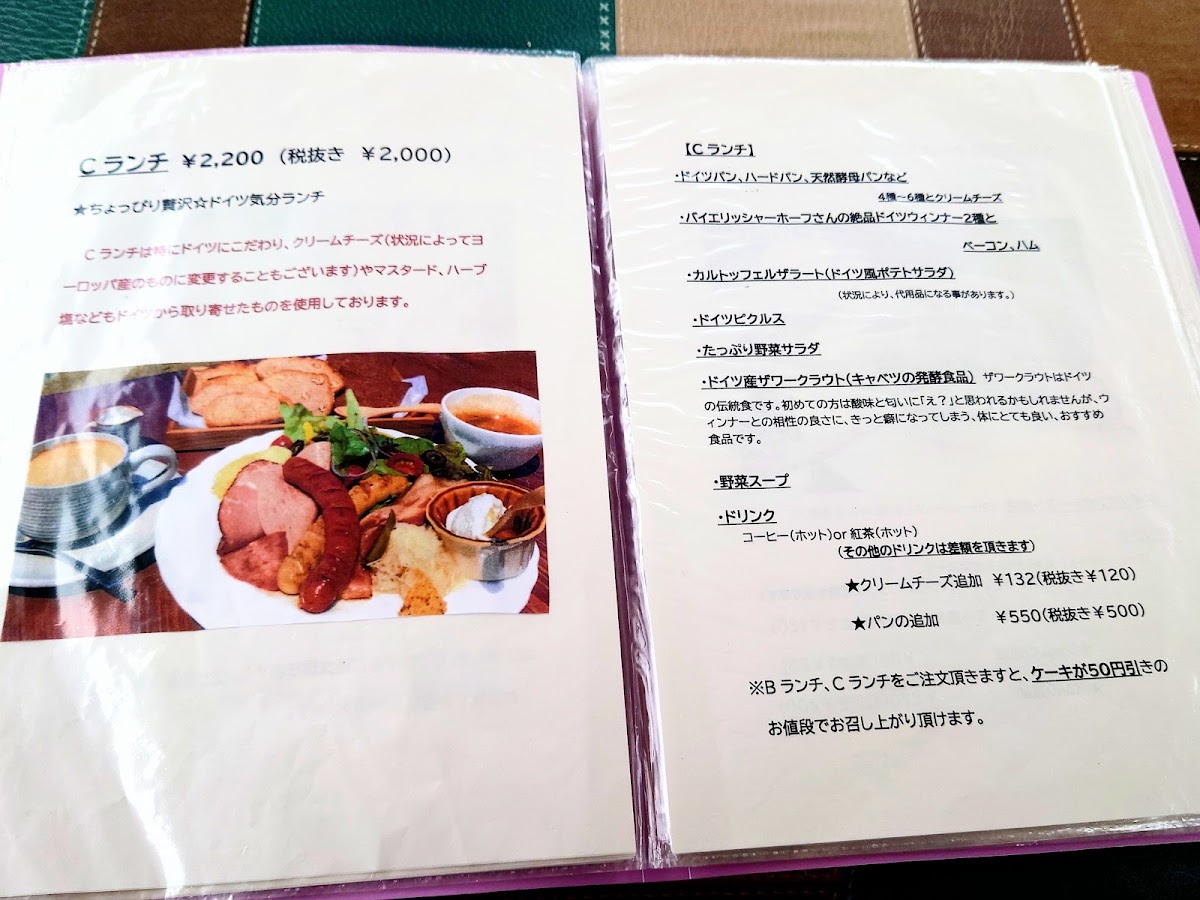 C ランチ ￥2,200 (税抜き ￥2,000)
★ちょっぴり贅沢☆ドイツ気分ランチ
C ランチは特にドイツにこだわり、クリームチーズ(状況によってヨ
ーロッパ産のものに変更することもございます)やマスタード、ハーブ
塩などもドイツから取り寄せたものを使用しております。
【C ランチ】
・ドイツパン、ハードパン、天然酵母パンなど
4種～6種とクリームチーズ
・バイエリッシャーホーフさんの絶品ドイツウィンナー2種と
ベーコン、ハム
・カルトッフェルザラート(ドイツ風ポテトサラダ)
(状況により、代用品になる事があります。)
・ドイツピクルス
・たっぷり野菜サラダ
・ドイツ産ザワークラウト(キャベツの発酵食品) ザワークラウトはドイツ
の伝統食です。初めての方は酸味と匂いに「え？」と思われるかもしれませんが、ウ
ィンナーとの相性の良さに、きっと癖になってしまう、体にとても良い、おすすめ
食品です。
・野菜スープ
・ドリンク
コーヒー(ホット)or 紅茶(ホット)
(その他のドリンクは差額を頂きます)
★クリームチーズ追加 ￥132(税抜き￥120)
★パンの追加 ￥550(税抜き￥500)
※B ランチ、C ランチをご注文頂きますと、ケーキが50円引きの
お値段でお召し上がり頂けます。